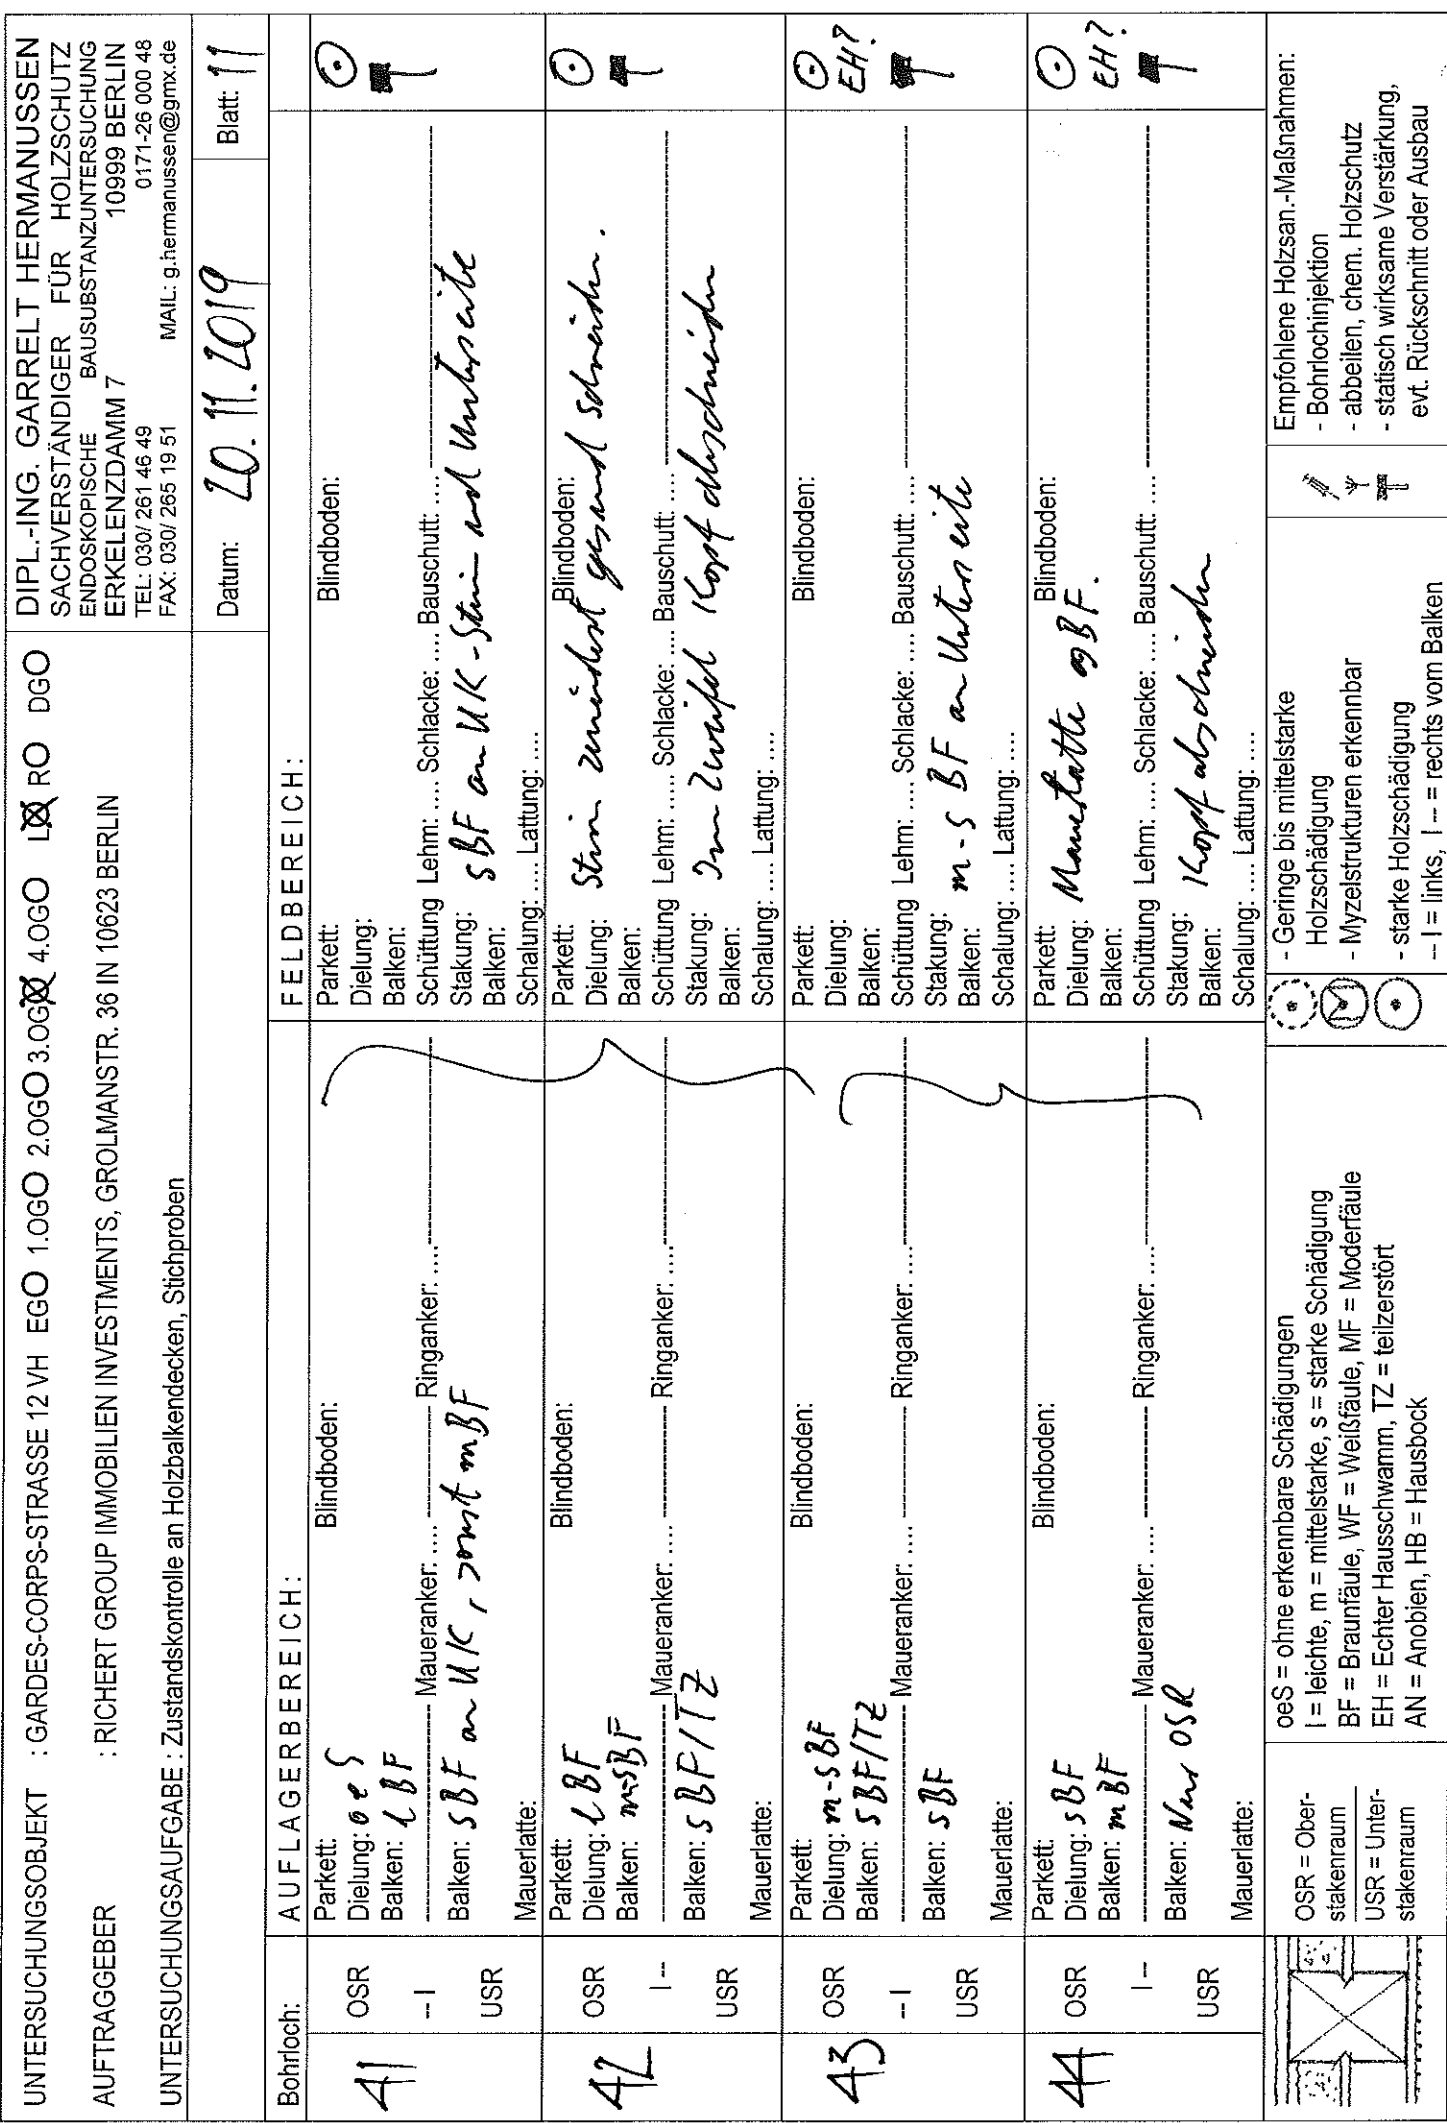 UNTERSUCHUNGSOBJEKT : GARDES-CORPS-STRASSE 12 VH EGO 1.OGO 2.OGO 3.OGO 4.OGO LO RO DGO
AUFTRAGGEBER : RICHERT GROUP IMMOBILIEN INVESTMENTS, GROLMANSTR. 36 IN 10623 BERLIN
UNTERSUCHUNGSAUFGABE : Zustandskontrolle an Holzbalkendecken, Stichproben
DIPL.-ING. GARRELT HERMANUSSEN
SACHVERSTÄNDIGER FÜR HOLZSCHUTZ
ENDOSKOPISCHE BAUSUBSTANZUNTERSUCHUNG
ERKELENZDAMM 7 10999 BERLIN
TEL: 030/ 261 46 49 0171-26 000 48
FAX: 030/ 265 19 51 MAIL: g.hermanussen@gmx.de
Datum: 20.11.2019 Blatt: 11
Bohrloch: AUFLAGERBEREICH: FELDBEREICH:
41
OSR
-- I
USR
Parkett: Blindboden:
Dielung: oeS
Balken: l BF
Maueranker: .... Ringanker: ....
Balken: sBF an UK, sonst mBF
Mauerlatte:
Parkett: Blindboden:
Dielung:
Balken:
Schüttung Lehm: .... Schlacke: .... Bauschutt: ....
Stakung: sBF an UK-Stirn und Unterseite
Balken:
Schalung: .... Lattung: ....
42
OSR
I --
USR
Parkett: Blindboden:
Dielung: l BF
Balken: m-sBF
Maueranker: .... Ringanker: ....
Balken: sBF/TZ
Mauerlatte:
Parkett: Blindboden:
Dielung: Stirn zunächst gesund schneiden.
Balken:
Schüttung Lehm: .... Schlacke: .... Bauschutt: ....
Stakung: Im Zweifel Kopf abschneiden
Balken:
Schalung: .... Lattung: ....
43
OSR
-- I
USR
Parkett: Blindboden:
Dielung: m-sBF
Balken: sBF/TZ
Maueranker: .... Ringanker: ....
Balken: sBF
Mauerlatte:
Parkett: Blindboden:
Dielung:
Balken:
Schüttung Lehm: .... Schlacke: .... Bauschutt: ....
Stakung: m-s BF an Unterseite
Balken:
Schalung: .... Lattung: ....
EH?
44
OSR
I --
USR
Parkett: Blindboden:
Dielung: sBF
Balken: mBF
Maueranker: .... Ringanker: ....
Balken: Nur OSR
Mauerlatte:
Parkett: Blindboden:
Dielung: Mauerlatte BF.
Balken:
Schüttung Lehm: .... Schlacke: .... Bauschutt: ....
Stakung: Kopf abschneiden
Balken:
Schalung: .... Lattung: ....
EH?
OSR = Ober-
stakenraum
USR = Unter-
stakenraum
oeS = ohne erkennbare Schädigungen
l = leichte, m = mittelstarke, s = starke Schädigung
BF = Braunfäule, WF = Weißfäule, MF = Moderfäule
EH = Echter Hausschwamm, TZ = teilzerstört
AN = Anobien, HB = Hausbock
- Geringe bis mittelstarke
Holzschädigung
- Myzelstrukturen erkennbar
- starke Holzschädigung
-- I = links, I -- = rechts vom Balken
Empfohlene Holzsan.-Maßnahmen:
- Bohrlochinjektion
- abbeilen, chem. Holzschutz
- statisch wirksame Verstärkung,
evt. Rückschnitt oder Ausbau